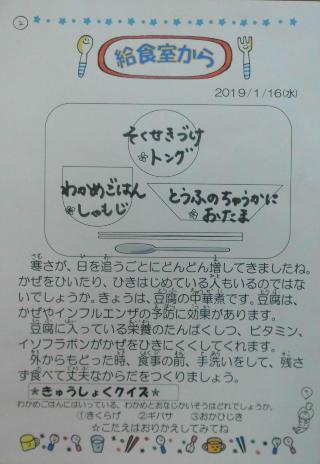 ②
給食室から
2019/1/16(水)
そくせきづけ
トング
わかめごはん
しゃもじ
とうふのちゅうかに
おたま
寒さが、日を追うごとにどんどん増してきましたね。
かぜをひいたり、ひきはじめている人もいるのではな
いでしょうか。きょうは、豆腐の中華煮です。豆腐は、
かぜやインフルエンザの予防に効果があります。
豆腐に入っている栄養のたんぱくしつ、ビタミン、
イソフラボンがかぜをひきにくくしてくれます。
外からもどった時、食事の前、手洗いをして、残さ
ず食べて丈夫なからだをつくりましょう。
★きゅうしょくクイズ★
わかめごはんにはいっている、わかめとおなじかいそうはどれでしょうか。
①きくらげ ②ギバサ ③おかひじき
☆こたえはおりかえしてみてね